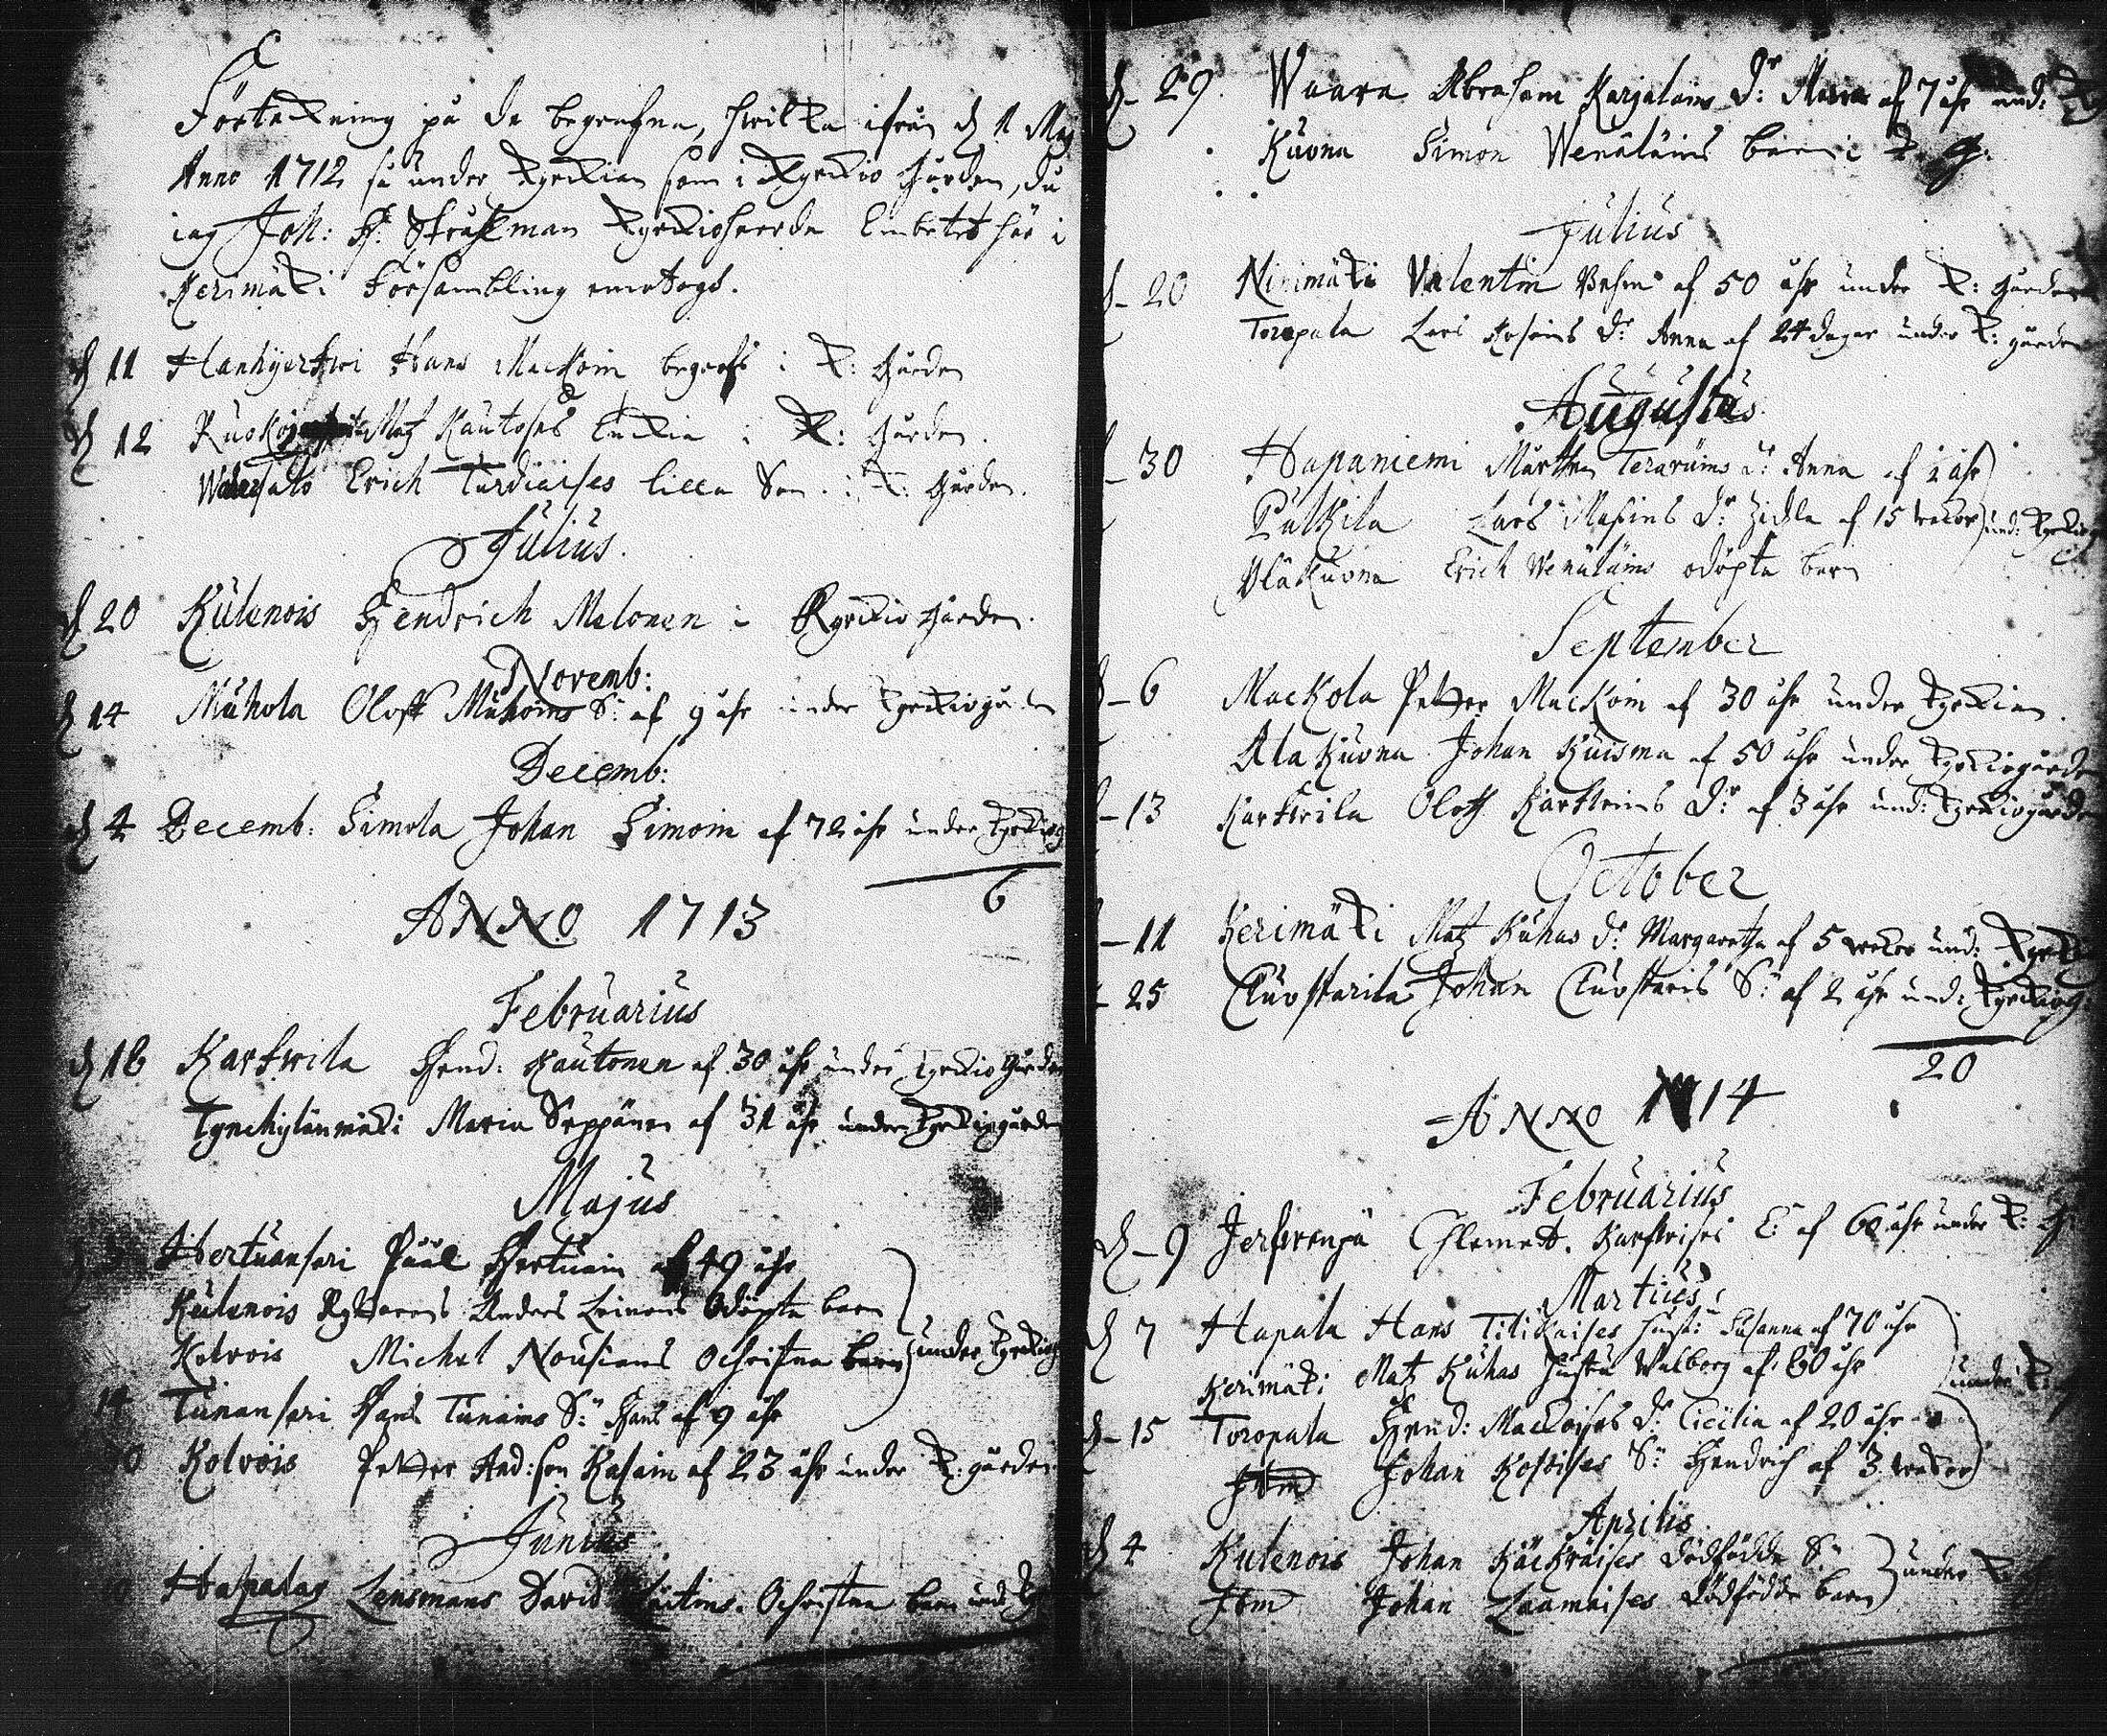 Förtekning på de begrafna, hvilka ifrån d 1 Maj
Anno 1712 så under kyrkian som i kyrkio gården, då
iag Joh: H: Stråhlman kyrkioherde Embetet här i
Kerimäki Försambling emotogh.
d 11 Hanhijerfwi Hans Mackoin begrofs i K: Gården
d 12 Matz Kautoses Enkia i K: Gården.
Erich Turdiaises lilla Son i K: Gården.
Julius.
d 20 Kulenois Hendrich Melonen i Kyrkio Gården.
Novemb:
d 14 Muhola Oloff Muhoins S: af 9 åhr under kyrkiogården
Decemb:
d 4 Decemb: Simola Johan Simoin af 72 åhr under kyrkiog
6
ANNO 1713
Februarius
d 16 Karfwila Hend: Kautonen af 30 åhr under kyrkio Gården
Maria Seppänen af 31 åhr under kyrkiogården
Majus
Hertuansari Påål Hertuain af 49 åhr
Kulenois Ryttarens Anders Leinons Odöpta barn
Kolvois Michel Nousiains Ochristna barn under kyrkiog
14 Tunansari Hans Tunains S: Hans af 9 åhr
Kolvois Petter And:son Kasain af 23 åhr under K: gården
Junius
Hapalax Lensmans David Ochristna barn und
d - 29. Waara Abraham Karjalains D: Maria af 7 åhr und:
Kuona Simon Wenäläins barn i K. G:
Julius
d - 20 Niinimäki Valentin af 50 åhr under K: Gården
Toropala Lars Kosoins D: Anna af 24 dagar under K: gården
Augustus.
30 Hapaniemi Mårthen D: Anna af 2 åhr
Pulkila Lars D: af 15 wekor und: kyrkiog
Yläkuona Erich Wenäläins odöpta barn
September
d - 6 Mackola Petter Mackoin af 30 åhr under kyrkian.
Ala Kuona Johan Kuisma af 50 åhr under kyrkiogården
- 13 Karfwila Oloff D: af 3 åhr und: kyrkiogården
October
- 11 Kerimäki Matz Kuhas D: Margaretha af 5 wekor und: kyrki
- 25 Cluostarila Johan Cluostaris S: af 2 åhr und: kyrkiog:
20
ANNO 1714
Februarius
d - 9 Jerfwenpä Clemet. af 60 åhr under K: G:
Martius
d 7 Hapala Hans Titikaises hustr: Susanna af 70 åhr
Kerimäki Matz Kuhas hustru Walborg af 60 åhr under K:
d - 15 Toropala Hend: Mackoises D: Cicilia af 20 åhr
Ibm Johan Kosoises S: Hendrich af 3 wekor
Aprilis
d 4 Kulenois Johan Käckväises dödfödde S:
Ibm Johan Laamaises dödfödde barn under K